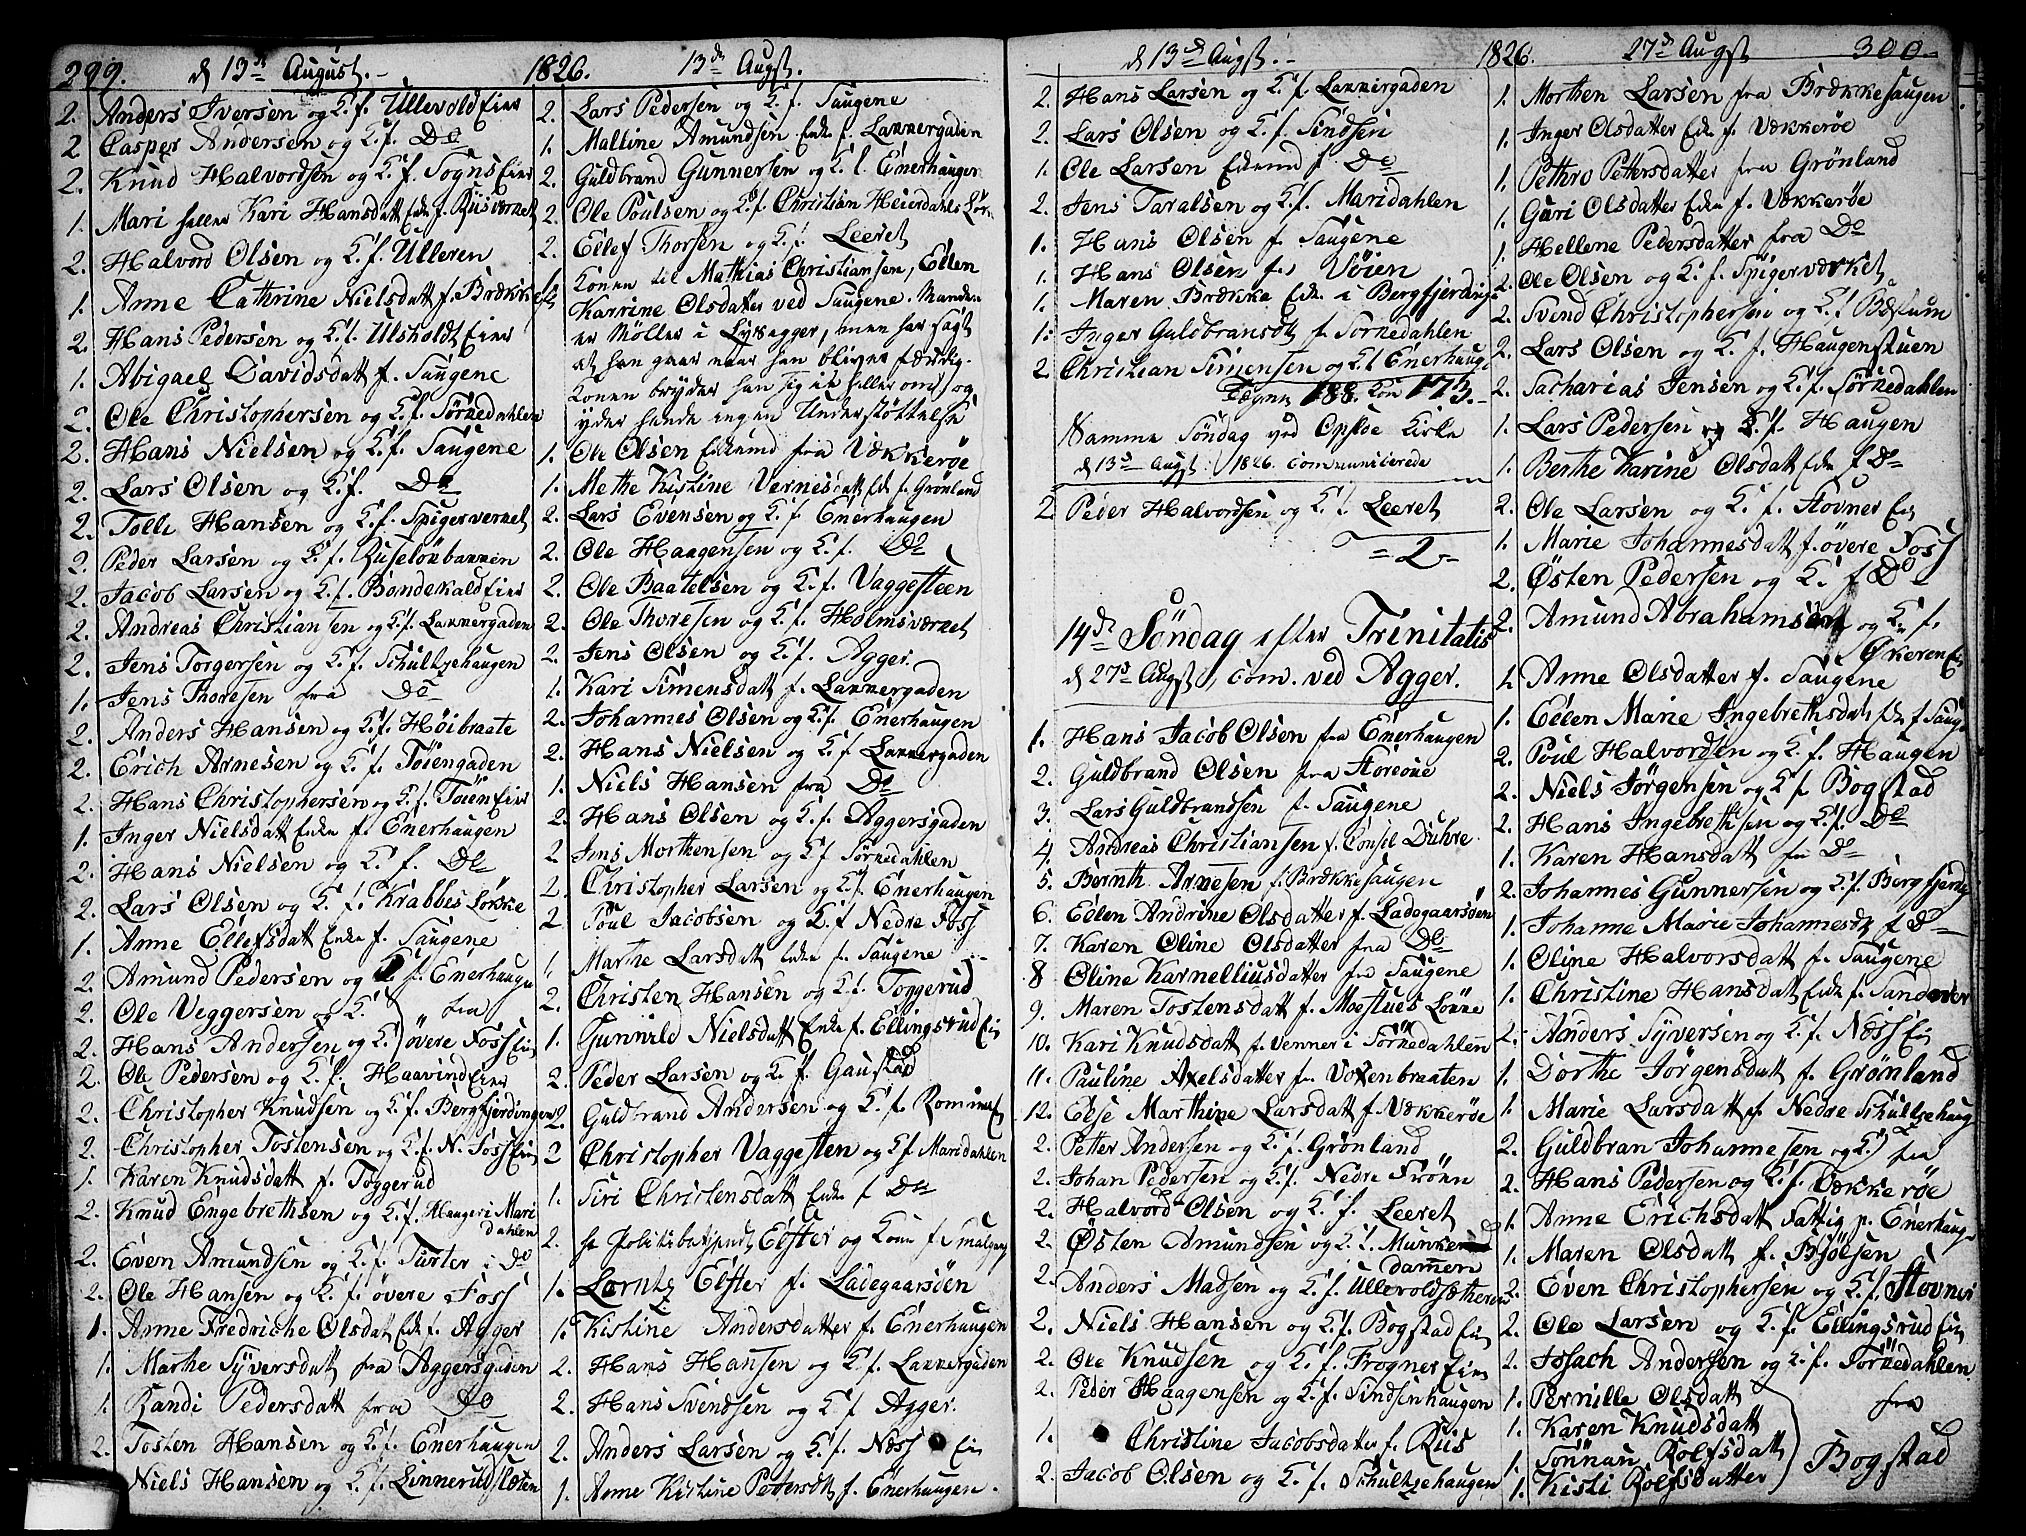 299. d 13de August. 1826. 13de Augst.
2. Anders Iversen og K. f. Ullevold Eier
2 Casper Andersen og K. f. Do
2. Knud Halvordsen og K. f. Sogns Eier
1. Mari heller Kari Hansdatt Enke f. Riisværket
2. Halvord Olsen og K. f. Ulleren
1. Anne Cathrine Nielsdatt f. Brække
2. Hans Pedersen og K. f. Ulsholdt Eier
1. Abigael Davidsdatt f. Saugene
2. Ole Christophersen og K. f. Sørkedahlen
2. Hans Nielsen og K. f. Saugene
2. Lars Olsen og K. f. Do
2. Tolle Hansen og K. f. Spigerverket
2. Peder Larsen og K. f. Ruseløkbakken
2. Jacob Larsen og K. f. Bondekald Eier
2. Andreas Christiansen og K. f. Lakkergaden
2. Jens Torgersen og K. f. Schultzehaugen
1. Jens Thoresen fra Do
2. Anders Hansen og K. f. Høibraate
2. Erich Arnesen og K. f. Tøiengaden
2. Hans Christophersen og K. f. Tøien Eier
1. Inger Nielsdatt Enke f. Enerhaugen
2. Hans Nielsen og K. f. Do
2. Lars Olsen og K. f. Krabbes Løkke
1. Anne Ellefsdatt Enke f. Saugene
2. Amund Pedersen og K. f. Enerhaugen
2. Ole Veggersen og K. fra
2. Hans Andersen og K. øvere Foss Eie
2. Ole Pedersen og K. f. Haavind Eier
2. Christopher Knudsen og K. f. Bergfjerdingen
2. Christopher Tostensen og K. f. N. Foss Eie
1. Karen Knudsdatt f. Toggerud
2. Knud Engebrethsen og K. f. Hauger i Mari
dahlen
2. Even Amundsen og K. f. Turter i Do
2. Ole Hansen og K. f. øvere Foss
1. Anne Fredriche Olsdatt Enke f. Agger
1. Marthe Syversdatt fra Aggersgaden
1. Randi Pedersdatt fra Do
2. Tosten Hansen og K. f. Enerhaugen
Niels Hansen og K. f. Linnerudsletten
2. Lars Pedersen og K. f. Saugene
1. Malline Amundsen Enke f. Lakkergaden
2. Guldbrand Gunnersen og K. f. Enerhaugen
2. Ole Poulsen og K. f. Christian Heierdahls Løk
2. Ellef Thorsen og K. f. Leeret
1. Konen til Mathias Christiansen, Ellen
Karrine Olsdatter ved Saugene. Manden
er Møller i Lysagger, men har sagt
at han gaar naar han bliver færdig.
Konen bryder han sig ik heller om, og
yder hende ingen Understøttelse
1. Ole Olsen Enkemd fra Vækkerøe
1. Methe Kistine Vernesdatt Enke f. Grønland
2. Lars Evensen og K. f. Enerhaugen
2. Ole Haagensen og K. f. Do
2. Ole Baatelsen og K. f. Vaggesteen
2. Ole Thoresen og K. f. Holmsværket
2. Jens Olsen og K. f. Agger.
1. Kari Simensdatt f. Lakkergaden
2. Johannes Olsen og K. f. Enerhaugen
2. Hans Nielsen og K. f Lakkergaden
1. Niels Hansen fra Do
2. Hans Olsen og K. f. Aggersgaden
2 Jens Morthensen og K. f Sørkedahlen
2. Christopher Larsen og K. f. Enerhaugen
2 Poul Jacobsen og K. f Nedre Foss
1. Marthe Larsdatt Enke f. Saugene
2. Christen Hansen og K. f. Toggerud
1. Gunnild Nielsdatt Enke f. Ellingsrud Eie
2. Peder Larsen og K. f. Gaustad
2. Guldbrand Andersen og K. f. Rommen Eie
2 Christopher Vaggesten og K f Maridahlen
1. Siri Christensdatt Enke f Do
2. Hr Politibetjendt Elster og Kone f Smalgang
1. Lorntz Elster f. Ladegaarsøen
1. Kistine Andersdatter f. Enerhaugen
2. Hans Hansen og K. f. Lakkergaden
2. Hans Svendsen og K. f Agger.
2. Anders Larsen og K. f. Næss Eie
1. Anne Kistine Pedersdt f. Enerhaugen.
d 13de Augst. 1826. 27de Augst 300
2. Hans Larsen og K. f. Lakkergaden
2. Lars Olsen og K. f. Sindsen
1. Ole Larsen Enkemd f Do
2. Jens Taralsen og K. f. Maridahlen
1. Hans Olsen f. Saugene
1. Hans Olsen fra Vøien
1. Maren Brække Enke i Bergfjerdinge
1. Inger Guldbransdt f. Sørkedahlen
2 Christian Simensen og K f Enerhaug
Tegnet 188. Kom 173.
Samme Søndag ved Opsloe Kirke
d 13de Augst 1826. communicerede
2 Peder Halvordsen og K. f. Leeret
= 2 =
14de Søndag efter Trinitatis
d 27de Augst, com. ved Agger.
1. Hans Jacob Olsen fra Enerhaugen
2. Guldbrand Olsen fra Storeøne
3. Lars Guldbrandsen f. Saugene
4. Andreas Christiansen f. Consel Duhre
5. Bernth Arnesen f. Brækkesaugen
6. Ellen Andrine Olsdatter f. Ladegaarsøen
7. Karen Oline Olsdatter fra Do
8 Oline Karnelliusdatter fra Saugene
9. Maren Tostensdatt f. Moestues Løkke
10. Kari Knudsdatt f. Venner i Sørkedahlen
11. Pauline Axelsdatter fra Voxenbraaten
12. Else Marthine Larsdatt f. Vækkerøe
2. Petter Andersen og K. f. Grønland
2. Johan Pedersen og K. f. Nedre Frøen
2. Halvord Olsen og K. f. Leeret
2. Østen Amundsen og K. f. Munke
dammen
2. Anders Madsen og K. f. Ullevoldsætheren
2. Niels Hansen og K. f. Bogstad Eie
2. Ole Knudsen og K. f. Frogner Eie
2. Peder Haagensen og K. f. Sindsenhaugen
1. Christine Jacobsdatter f. Riis
2. Jacob Olsen og K. f. Schultzehaugen
1. Morthen Larsen fra Brækkesaugen
1. Inger Olsdatter Enke f. Vækkerøe
1. Pethro Pettersdatter fra Grönland
1. Guri Olsdatter Enke f. Vækkerøe
1. Hellene Pedersdatter fra Do
2. Ole Olsen og K. f. Spigerværket
2. Svend Christophersen og K. f Bæstum
2. Lars Olsen og K. f. Haugenstuen
2. Sacharias Jensen og K. f. Sørkedahlen
1. Lars Pedersen og K. f. Haugen
1. Berthe Karine Olsdatt Enke f Do
2. Ole Larsen og K. f. Stovner Eie
1. Marie Johannesdatt f. øvere Foss
2. Østen Pedersen og K. f Do
2. Amund Abrahamsen og K. f.
Økeren Eie
1. Anne Olsdatter f. Saugene
1. Ellen Marie Ingebrethsdatt Enke f Saug
2. Poul Halvordsen og K. f. Haugen
2. Niels Jörgensen og K f. Bogstad
2. Hans Ingebrethsen og K. f. Do
1. Karen Hansdatt fra Do
2. Johannes Gunnersen og K. f. Bergfjerdg
1. Johanne Marie Johannesdt f Do
1. Oline Halvorsdatt f. Saugene
1. Christine Hansdatt Enke f. Sandaker
2. Anders Syversen og K. f. Næss Eie
1. Dorthe Jörgensdatt f. Grønland
1. Marie Larsdatt f. Nedre Schultzehaug
2. Guldbran Johannesen og K. fra
2. Hans Pedersen og K. f. Vækkerøe
1. Anne Erichsdatt Fattig p. Enerhauge
1. Maren Olsdatt f. Bjølsen
2. Even Christophersen og K. f. Stovner
2. Ole Larsen og K. f. Ellingsrud Eie
2. Issach Andersen og K. f. Sørkedahlen
1. Pernille Olsdatt
1. Karen Knudsdatt fra
1. Sønnau Rolfsdatt Bogstad
1. Kisti Rolfsdatter